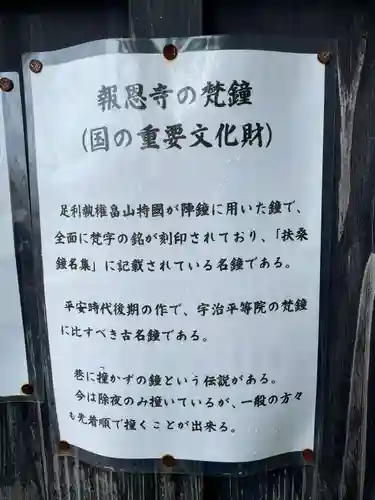 報恩寺の梵鐘
(国の重要文化財)
足利執権畠山持國が陣鐘に用いた鐘で、
全面に梵字の銘が刻印されており、「扶桑
鐘名集」に記載されている名鐘である。
平安時代後期の作で、宇治平等院の梵鐘
に比すべき古名鐘である。
巷に撞かずの鐘という伝説がある。
今は除夜のみ撞いているが、一般の方々
も先着順で撞くことが出来る。